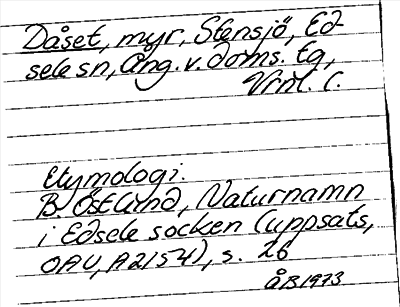 Dåset, myr, Stensjö, Ed-
sele sn, Ång. v. doms. tg,
Vrnl. l.
Etymologi:
B. Östlund, Naturnamn
i Edsele socken (uppsats,
OAU, A2154), s. 26
ÅB 1973